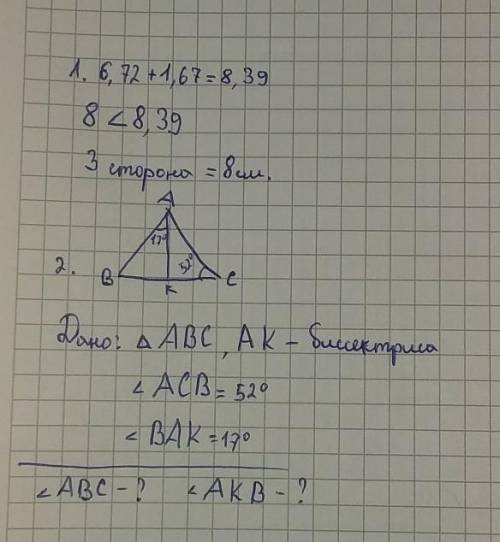 1. 6,72+1,67=8,39
8 < 8,39
3 сторона = 8 см.
A
17°
2. B K 52° C
Дано: △ ABC, AK – биссектриса
∠ ACB = 52°
∠ BAK = 17°
∠ ABC – ? ∠ AKB – ?